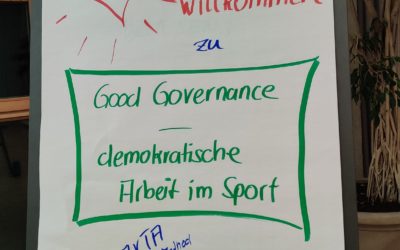 Willkommen
zu
Good Governance
—
demokratische
Arbeit im Sport